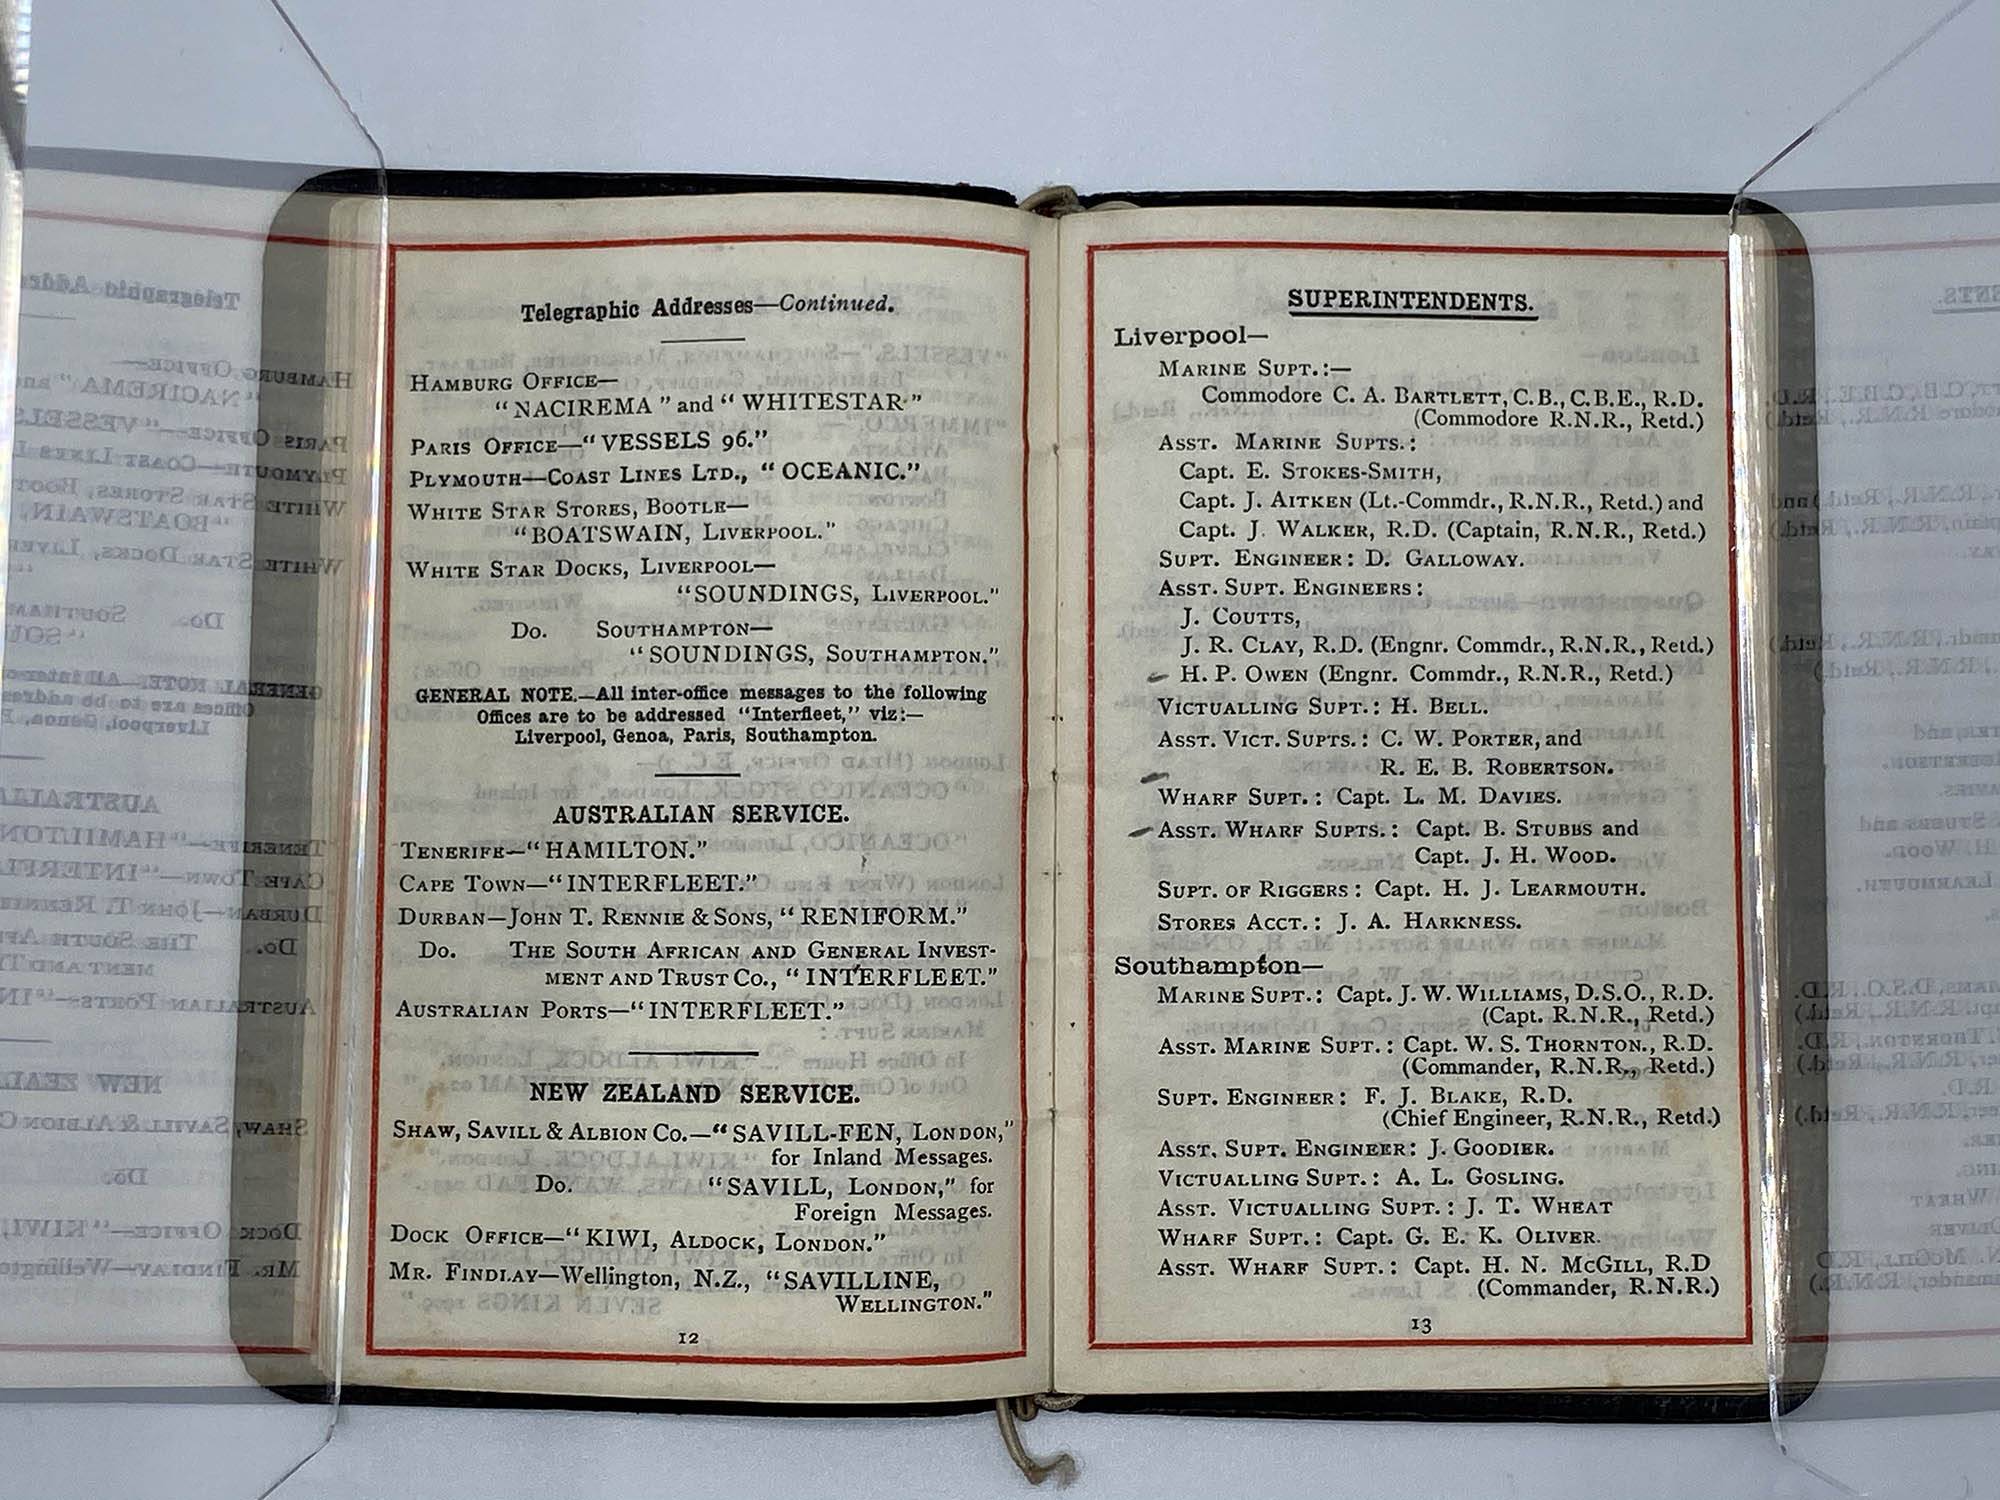 Telegraphic Addresses—Continued.
HAMBURG OFFICE—
"NACIREMA" and "WHITESTAR"
PARIS OFFICE—"VESSELS 96."
PLYMOUTH—COAST LINES LTD., "OCEANIC."
WHITE STAR STORES, BOOTLE—
"BOATSWAIN, LIVERPOOL."
WHITE STAR DOCKS, LIVERPOOL—
"SOUNDINGS, LIVERPOOL."
Do. SOUTHAMPTON—
"SOUNDINGS, SOUTHAMPTON."
GENERAL NOTE.—All inter-office messages to the following
Offices are to be addressed "Interfleet," viz:—
Liverpool, Genoa, Paris, Southampton.
AUSTRALIAN SERVICE.
TENERIFE—"HAMILTON."
CAPE TOWN—"INTERFLEET."
DURBAN—JOHN T. RENNIE & SONS, "RENIFORM."
Do. THE SOUTH AFRICAN AND GENERAL INVEST-
MENT AND TRUST CO., "INTERFLEET."
AUSTRALIAN PORTS—"INTERFLEET."
NEW ZEALAND SERVICE.
SHAW, SAVILL & ALBION CO.—"SAVILL-FEN, LONDON,"
for Inland Messages.
Do. "SAVILL, LONDON," for
Foreign Messages.
DOCK OFFICE—"KIWI, ALDOCK, LONDON."
MR. FINDLAY—Wellington, N.Z., "SAVILLINE,
WELLINGTON."
12
SUPERINTENDENTS.
Liverpool—
MARINE SUPT.:—
Commodore C. A. BARTLETT, C.B., C.B.E., R.D.
(Commodore R.N.R., Retd.)
ASST. MARINE SUPTS.:
Capt. E. STOKES-SMITH,
Capt. J. AITKEN (Lt.-Commdr., R.N.R., Retd.) and
Capt. J. WALKER, R.D. (Captain, R.N.R., Retd.)
SUPT. ENGINEER: D. GALLOWAY.
ASST. SUPT. ENGINEERS:
J. COUTTS,
J. R. CLAY, R.D. (Engnr. Commdr., R.N.R., Retd.)
H. P. OWEN (Engnr. Commdr., R.N.R., Retd.)
VICTUALLING SUPT.: H. BELL.
ASST. VICT. SUPTS.: C. W. PORTER, and
R. E. B. ROBERTSON.
WHARF SUPT.: Capt. L. M. DAVIES.
ASST. WHARF SUPTS.: Capt. B. STUBBS and
Capt. J. H. WOOD.
SUPT. OF RIGGERS: Capt. H. J. LEARMOUTH.
STORES ACCT.: J. A. HARKNESS.
Southampton—
MARINE SUPT.: Capt. J. W. WILLIAMS, D.S.O., R.D.
(Capt. R.N.R., Retd.)
ASST. MARINE SUPT.: Capt. W. S. THORNTON., R.D.
(Commander, R.N.R., Retd.)
SUPT. ENGINEER: F. J. BLAKE, R.D.
(Chief Engineer, R.N.R., Retd.)
ASST. SUPT. ENGINEER: J. GOODIER.
VICTUALLING SUPT.: A. L. GOSLING.
ASST. VICTUALLING SUPT.: J. T. WHEAT
WHARF SUPT.: Capt. G. E. K. OLIVER.
ASST. WHARF SUPT.: Capt. H. N. MCGILL, R.D
(Commander, R.N.R.)
13